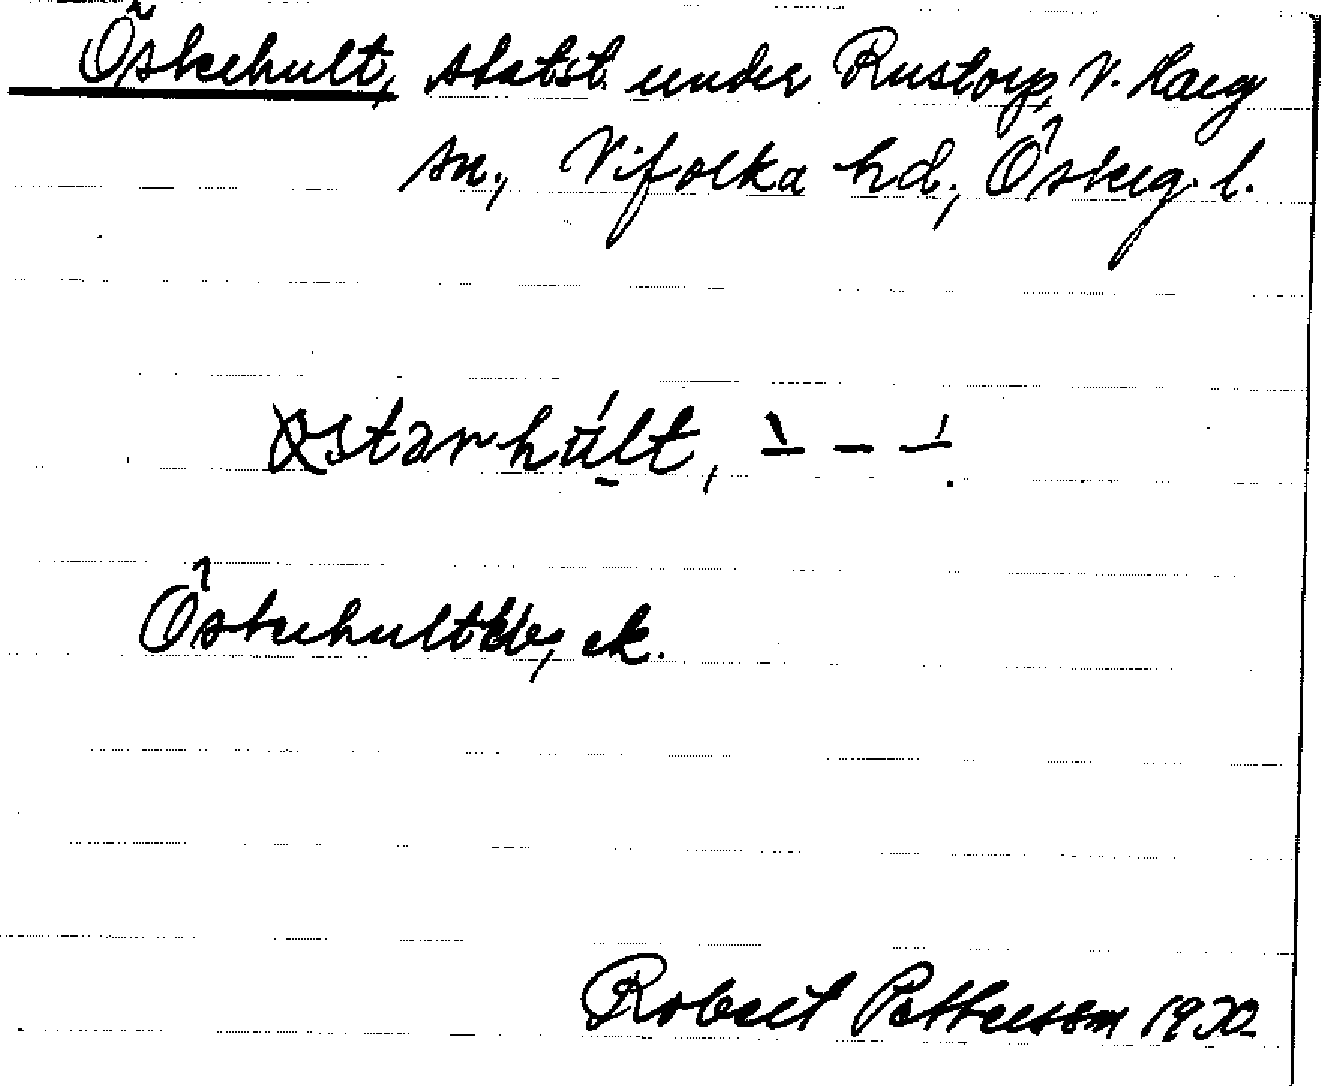 Österhult, statst. under Rustorp, V. Harg
sn., Vifolka hd., Österg. l.
östarhult,
Österhult, ek.
Robert Pettersson 1930